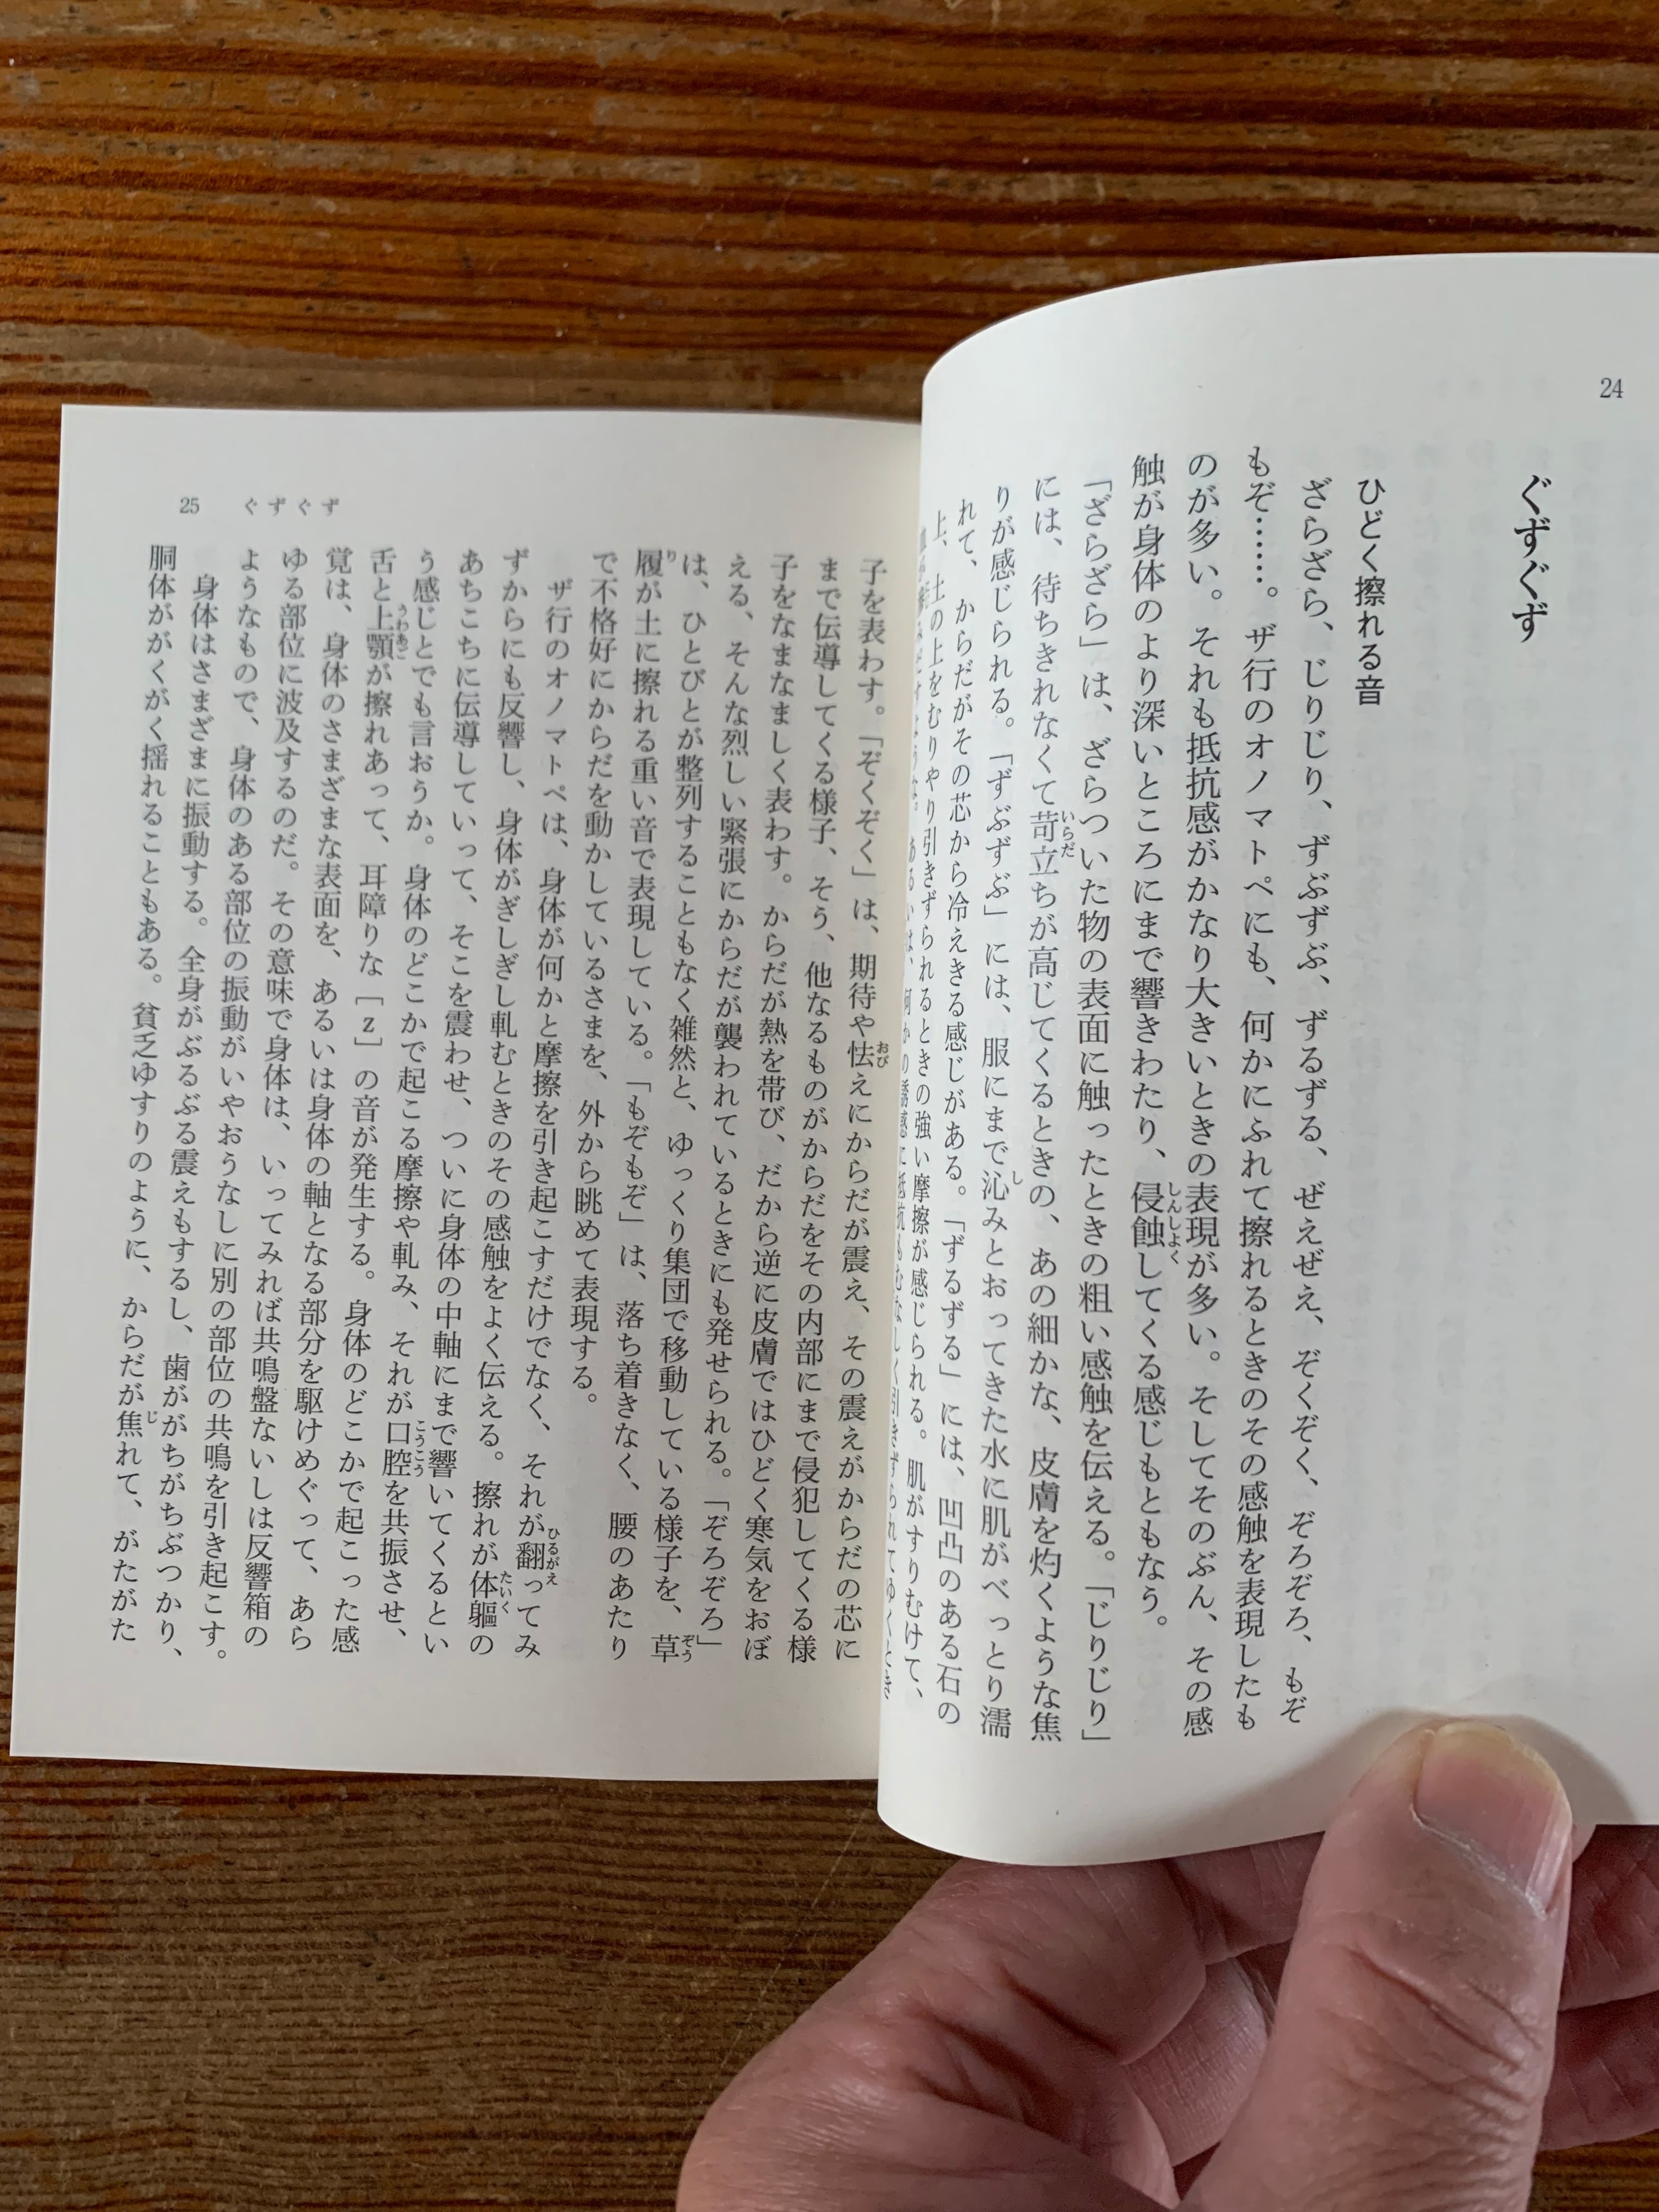 24
ぐずぐず
ひどく擦れる音
ざらざら、じりじり、ずぶずぶ、ずるずる、ぜえぜえ、ぞくぞく、ぞろぞろ、もぞ
もぞ……。ザ行のオノマトペにも、何かにふれて擦れるときのその感触を表現したも
のが多い。それも抵抗感がかなり大きいときの表現が多い。そしてそのぶん、その感
触が身体のより深いところにまで響きわたり、侵蝕してくる感じもともなう。
「ざらざら」は、ざらついた物の表面に触ったときの粗い感触を伝える。「じりじり」
には、待ちきれなくて苛立ちが高じてくるときの、あの細かな、皮膚を灼くような焦
りが感じられる。「ずぶずぶ」には、服にまで沁みとおってきた水に肌がべっとり濡
れて、からだがその芯から冷えきる感じがある。「ずるずる」には、凹凸のある石の
上、土の上をむりやり引きずられるときの強い摩擦が感じられる。肌がすりむけて、
あるいは、何かの誘惑に抵抗もむなしく引きずられてゆくとき
25 ぐずぐず
子を表わす。「ぞくぞく」は、期待や怯えにからだが震え、その震えがからだの芯に
まで伝導してくる様子、そう、他なるものがからだをその内部にまで侵犯してくる様
子をなまなましく表わす。からだが熱を帯び、だから逆に皮膚ではひどく寒気をおぼ
える、そんな烈しい緊張にからだが襲われているときにも発せられる。「ぞろぞろ」
は、ひとびとが整列することもなく雑然と、ゆっくり集団で移動している様子を、草
履が土に擦れる重い音で表現している。「もぞもぞ」は、落ち着きなく、腰のあたり
で不格好にからだを動かしているさまを、外から眺めて表現する。
ザ行のオノマトペは、身体が何かと摩擦を引き起こすだけでなく、それが翻ってみ
ずからにも反響し、身体がぎしぎし軋むときのその感触をよく伝える。擦れが体軀の
あちこちに伝導していって、そこを震わせ、ついに身体の中軸にまで響いてくるとい
う感じとでも言おうか。身体のどこかで起こる摩擦や軋み、それが口腔を共振させ、
舌と上顎が擦れあって、耳障りな［z］の音が発生する。身体のどこかで起こった感
覚は、身体のさまざまな表面を、あるいは身体の軸となる部分を駆けめぐって、あら
ゆる部位に波及するのだ。その意味で身体は、いってみれば共鳴盤ないしは反響箱の
ようなもので、身体のある部位の振動がいやおうなしに別の部位の共鳴を引き起こす。
身体はさまざまに振動する。全身がぶるぶる震えもするし、歯ががちがちぶつかり、
胴体ががくがく揺れることもある。貧乏ゆすりのように、からだが焦れて、がたがた